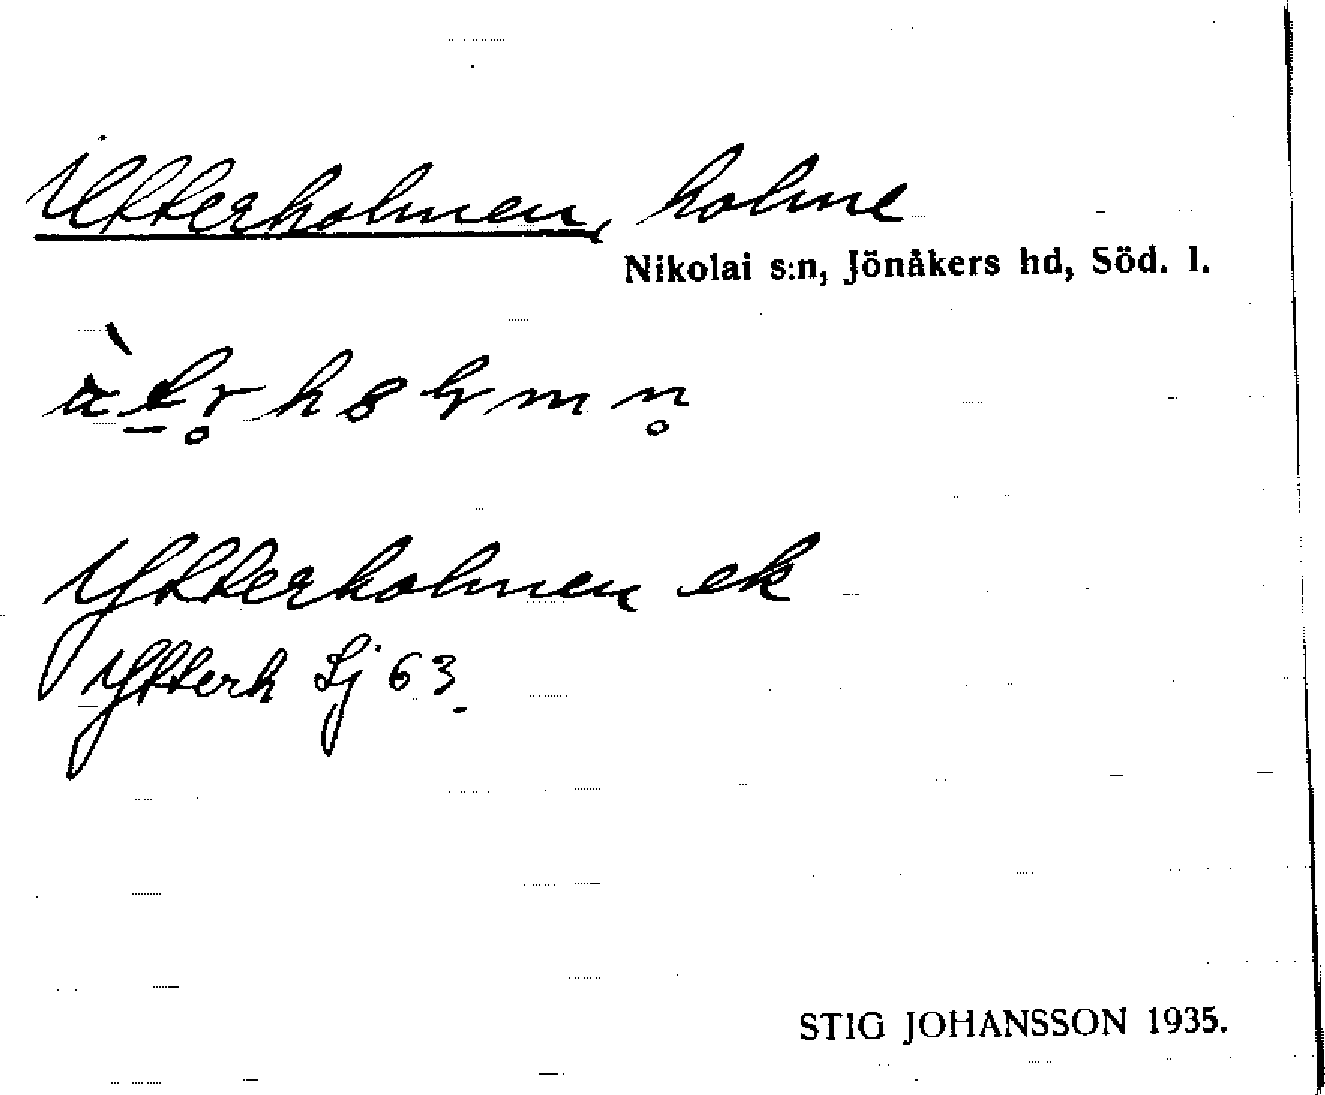 Ytterholmen, holme
Nikolai s:n, Jönåkers hd, Söd. l.
Ytterholmen ek
Ytterh Sj 63
STIG JOHANSSON 1935.